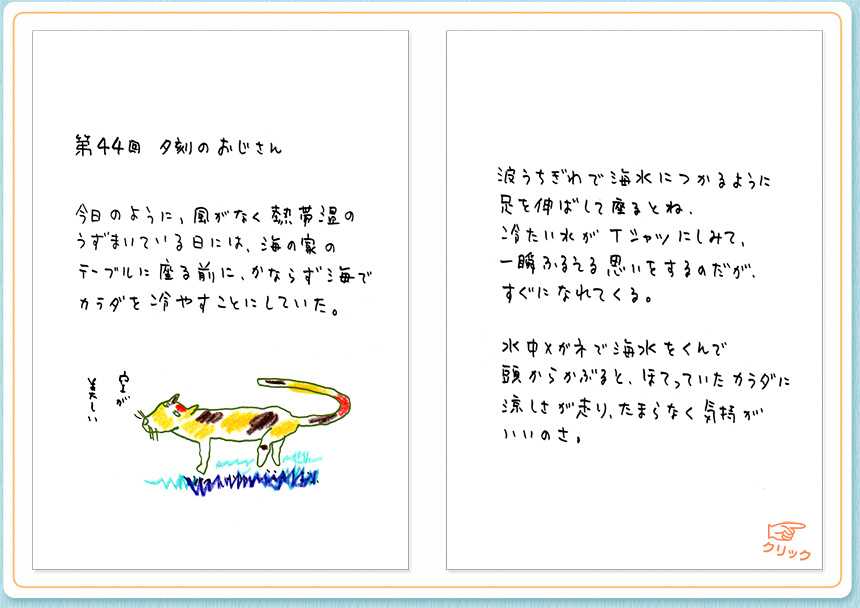 第44回 夕刻のおじさん
今日のように、風がなく熱帯温の
うずまいている日には、海の家の
テーブルに座る前に、かならず海で
カラダを冷やすことにしていた。
空が
美しい
波うちぎわで海水につかるように
足を伸ばして座るとね、
冷たい水がTシャツにしみて、
一瞬ふるえる思いをするのだが、
すぐになれてくる。
水中メガネで海水をくんで
頭からかぶると、ほてっていたカラダに
涼しさが走り、たまらなく気持が
いいのさ。
クリック